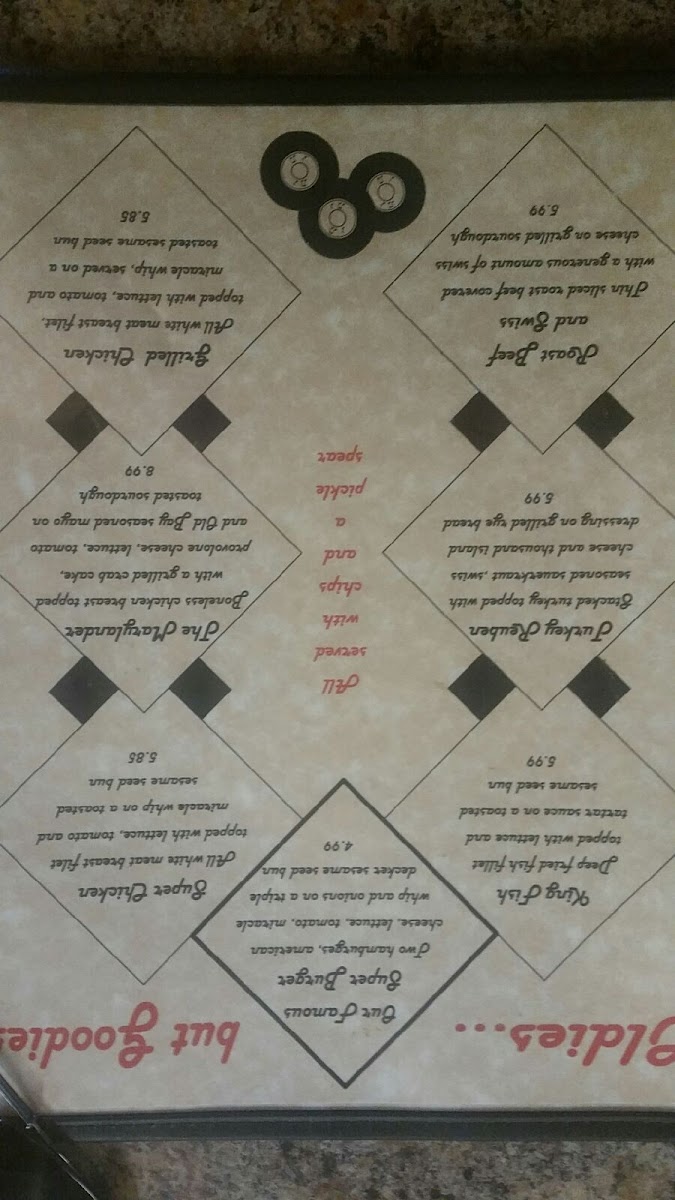 Oldies...
but Goodies
Our Famous
Super Burger
Two hamburgers, american
cheese, lettuce, tomato, miracle
whip and onions on a triple
decker sesame seed bun
4.99
King Fish
Deep fried fish fillet
topped with lettuce and
tartar sauce on a toasted
sesame seed bun
5.99
Super Chicken
All white meat breast filet
topped with lettuce, tomato and
miracle whip on a toasted
sesame seed bun
5.85
All
served
with
chips
and
a
pickle
spear
Turkey Reuben
Stacked turkey topped with
seasoned sauerkraut ,swiss
cheese and thousand island
dressing on grilled rye bread
5.99
The Marylander
Boneless chicken breast topped
with a grilled crab cake,
provolone cheese, lettuce, tomato
and Old Bay seasoned mayo on
toasted sourdough
8.99
Roast Beef
and Swiss
Thin sliced roast beef covered
with a generous amount of swiss
cheese on grilled sourdough
5.99
Grilled Chicken
All white meat breast filet,
topped with lettuce, tomato and
miracle whip, served on a
toasted sesame seed bun
5.85